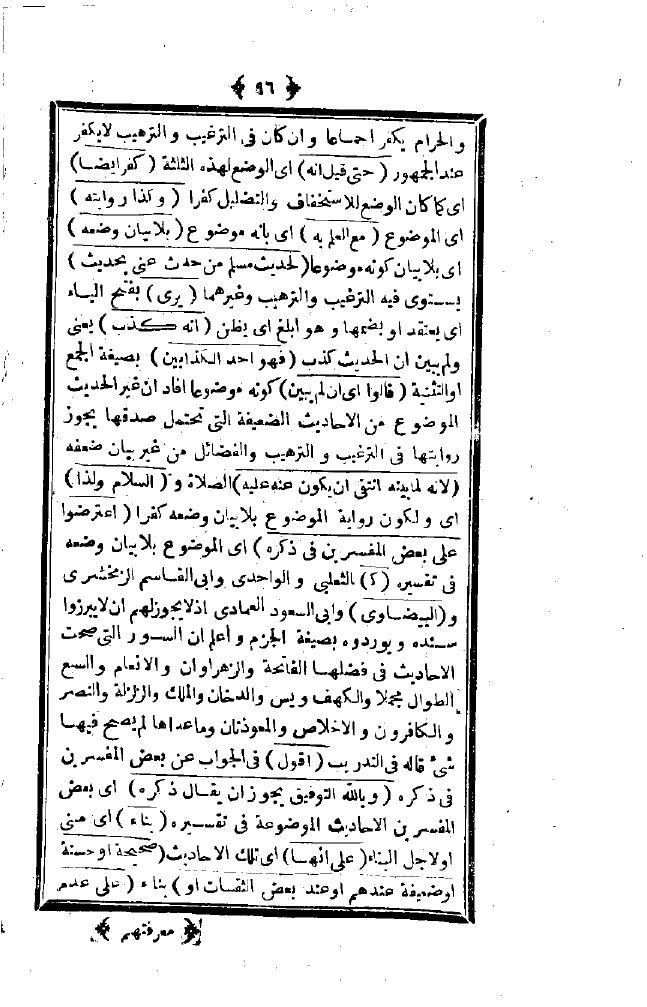 ﴿ ٩٦ ﴾
والحرام يكفر اجماعا وان كان فى الترغيب والترهيب لايكفر
عند الجمهور ( حتى قيل انه ) اى الوضع لهذه الثالثة ( كفر ايضا )
اى كما كان الوضع للاستخفاف والتضليل كفرا ( وكذا روايته )
اى الموضوع ( مع العلم به ) اى بانه موضوع ( بلابيان وضعه )
اى بلابيان كونه موضوعا ( لحديث مسلم من حدث عنى بحديث )
يستوى فيه الترغيب والترهيب وغيرهما ( يرى ) بفتح الياء
اى يعتقد او بضمها وهو ابلغ اى يظن ( انه كذب ) يعنى
ولم يبين ان الحديث كذب ( فهو احد الكذابين ) بصيغة الجمع
اوالتثنية ( قالوا اى ان لم يبين ) كونه موضوعا افاد ان غير الحديث
الموضوع من الاحاديث الضعيفة التى تحتمل صدقها يجوز
روايتها فى الترغيب و الترهيب والفضائل من غير بيان ضعفه
( لانه لمابينه انتفى ان يكون عنه عليه ) الصلاة و ( السلام ولذا )
اى ولكون رواية الموضوع بلابيان وضعه كفرا ( اعترضوا
على بعض المفسرين فى ذكره ) اى الموضوع بلابيان وضعه
فى تفسيره ( كا ) الثعلبى و الواحدى وابى القاسم الزمخشرى
و ( البيضاوى ) وابى السعود العمادى اذلايجوزلهم ان لايبرزوا
سنده ويوردوه بصيغة الجزم و أعلم ان السور التى صحت
الاحاديث فى فضلها الفاتحة والزهراوان والانعام والسبع
الطوال مجملا والكهف ويس والدخان والملك والزلزلة والنصر
و الكافرون و الاخلاص والمعوذتان وماعداها لم يصح فيها
شئ قاله فى التدريب ( اقول ) فى الجواب عن بعض المفسرين
فى ذكره ( وبالله التوفيق يجوز ان يقال ذكره ) اى بعض
المفسرين الاحاديث الموضوعة فى تفسيره ( بناء ) اى مبنى
اولاجل البناء ( على انها ) اى تلك الاحاديث ( صحيحة او حسنة
اوضعيفة عندهم اوعند بعض الثقات او ) بناء ( على عدم
﴿ معرفتهم ﴾